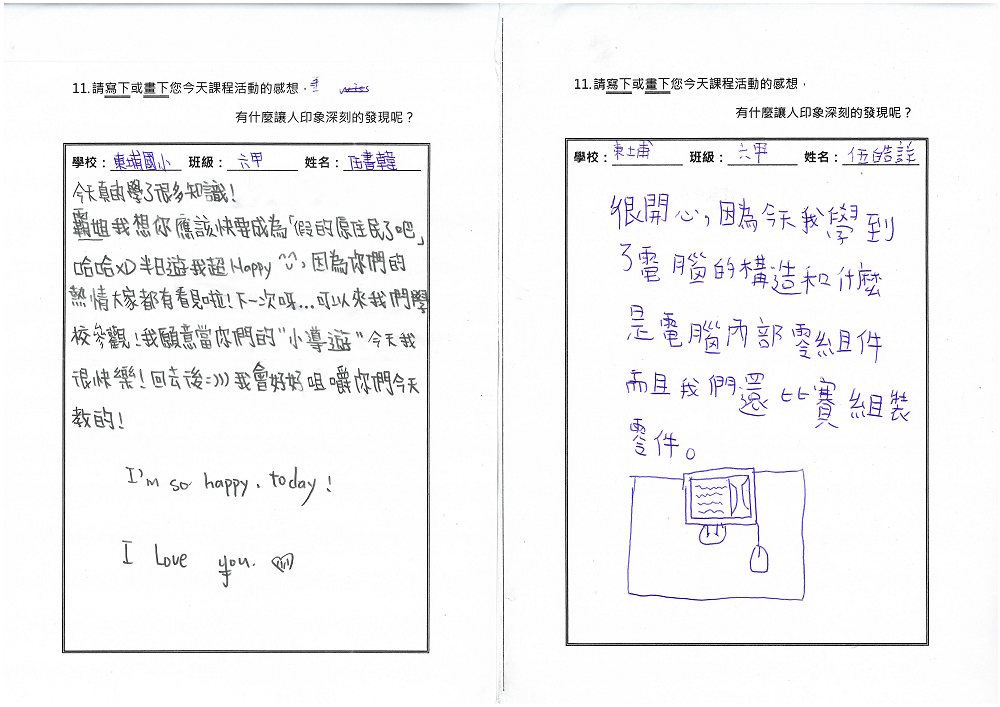 11.請寫下或畫下您今天課程活動的感想，
有什麼讓人印象深刻的發現呢？
學校：東埔國小 班級：六甲 姓名：伍書韓
今天真的學了很多知識！
霸姐我想你應該快要成為「假的原住民了吧」
哈哈XD半日遊我超Happy，因為你們的
熱情大家都有看見啦！下一次呀...可以來我們學
校參觀！我願意當你們的"小導遊"今天我
很快樂！回去後=)))我會好好咀嚼你們今天
教的！
I'm so happy, today!
I Love you.
11.請寫下或畫下您今天課程活動的感想，
有什麼讓人印象深刻的發現呢？
學校：東埔 班級：六甲 姓名：伍皓詳
很開心，因為今天我學到
了電腦的構造和什麼
是電腦內部零組件
而且我們還比賽組裝
零件。